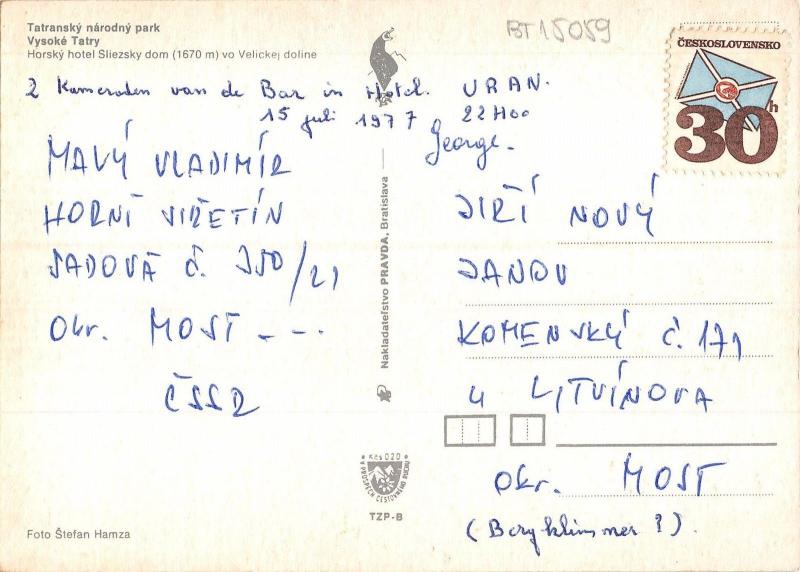 Tatranský národný park
Vysoké Tatry
Horský hotel Sliezsky dom (1670 m) vo Velickej doline
BT15059
ČESKOSLOVENSKO
30h
2 Kameraden van de Bar in Hotel. URAN.
15 juli 1977 22H00
George.
MAVÝ VLADIMÍR
HORNÍ JIŘETÍN
SADOVÁ Č. 350/21
Okr. MOST - - .
ČSSR
Nakladateľstvo PRAVDA, Bratislava
JIŘÍ NOVÝ
JANOV
KOMENSKÝ Č. 171
u LITVÍNOVA
okr. MOST
(Bergklimmer ?).
Kčs 0,20
V PROSPECH CESTOVNÉHO RUCHU
TZP-B
Foto Štefan Hamza